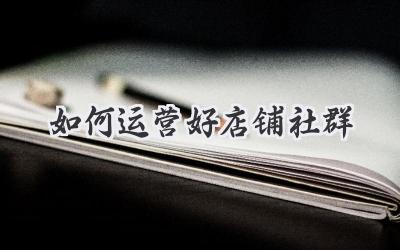 如何运营好店铺社群